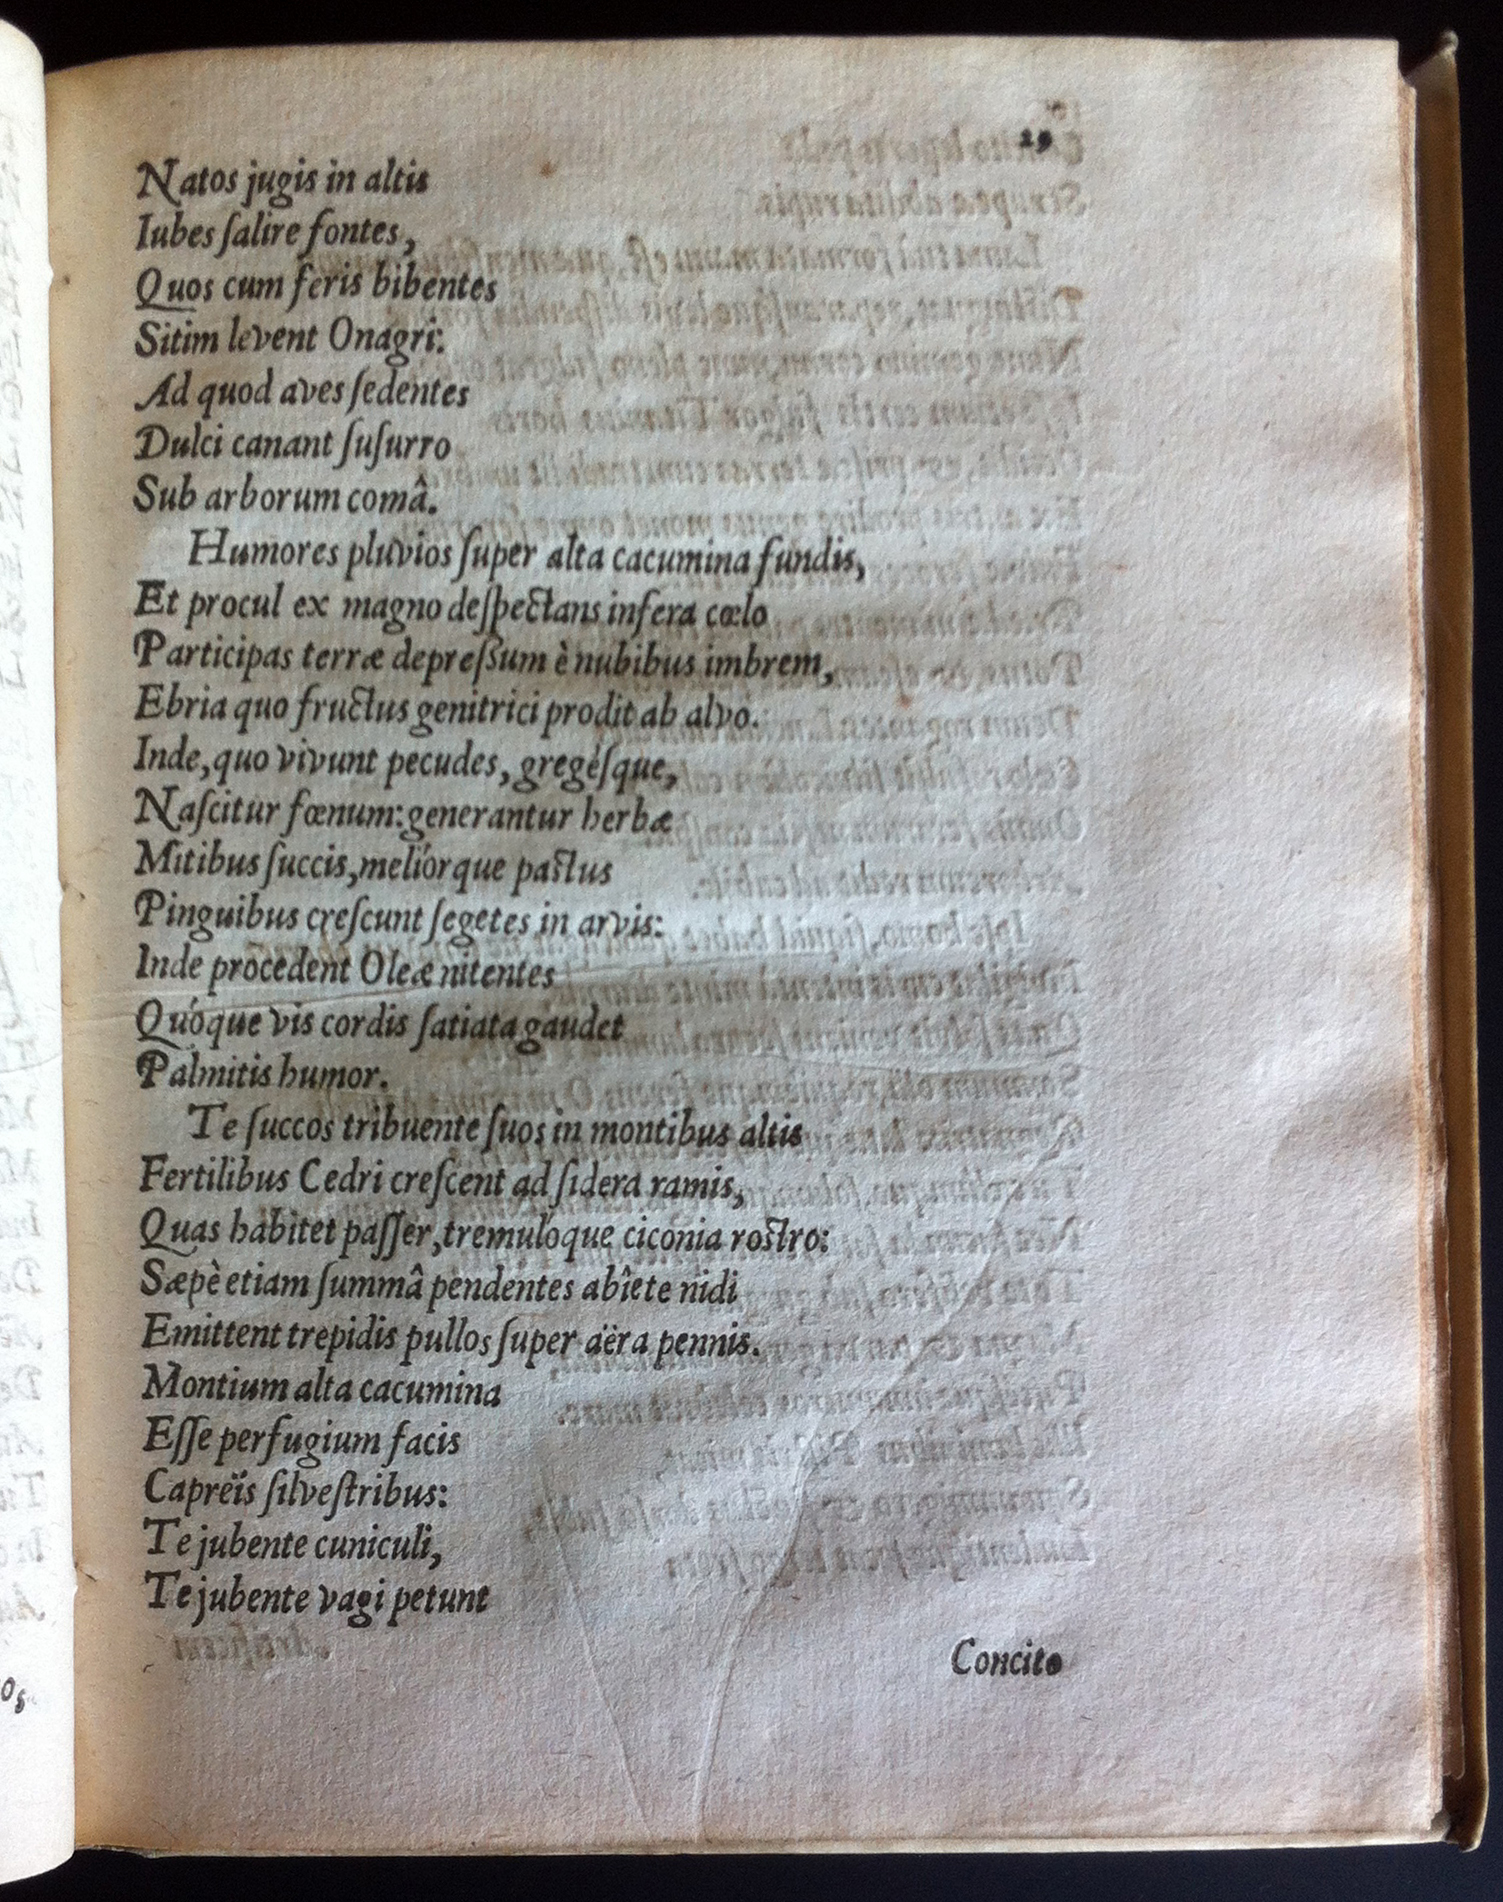 29
Natos jugis in altis
Iubes ſalire fontes,
Quos cum feris bibentes
Sitim levent Onagri:
Ad quod aves ſedentes
Dulci canant ſuſurro
Sub arborum comâ.
Humores pluvios ſuper alta cacumina fundis,
Et procul ex magno deſpectans infera cœlo
Participas terræ depreſſum è nubibus imbrem,
Ebria quo fructus genitrici prodit ab alvo.
Inde, quo vivunt pecudes, gregéſque,
Naſcitur fœnum: generantur herbæ
Mitibus ſuccis, meliórque paſtus
Pinguibus creſcunt ſegetes in arvis:
Inde procedent Oleæ nitentes
Quóque vis cordis ſatiata gaudet
Palmitis humor.
Te ſuccos tribuente ſuos in montibus altis
Fertilibus Cedri creſcent ad ſidera ramis,
Quas habitet paſſer, tremulóque ciconia roſtro:
Sæpè etiam ſummâ pendentes abîete nidi
Emittent trepidis pullos ſuper aëra pennis.
Montium alta cacumina
Eſſe perfugium facis
Capreïs ſilveſtribus:
Te jubente cuniculi,
Te jubente vagi petunt
Concito